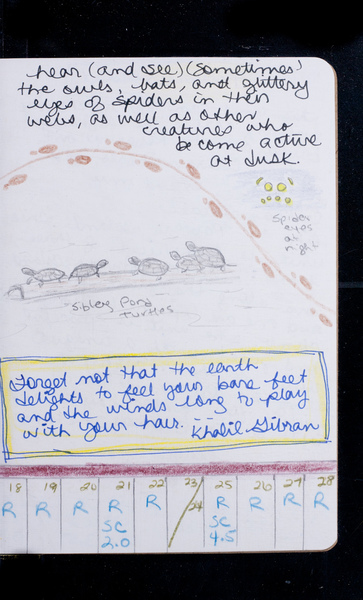 hear (and see) (sometimes)
the owls, bats, and glittery
eyes of spiders in their
webs, as well as other
creatures who
become active
at dusk.
Spider
eyes
at
night
Sibley Pond
Turtles
Forget not that the earth
delights to feel your bare feet
and the winds long to play
with your hair. -- Khalil Gibran
18 19 20 21 22 23/24 25 26 27 28
R R R R R R R R R
SC SC
2.0 4.5